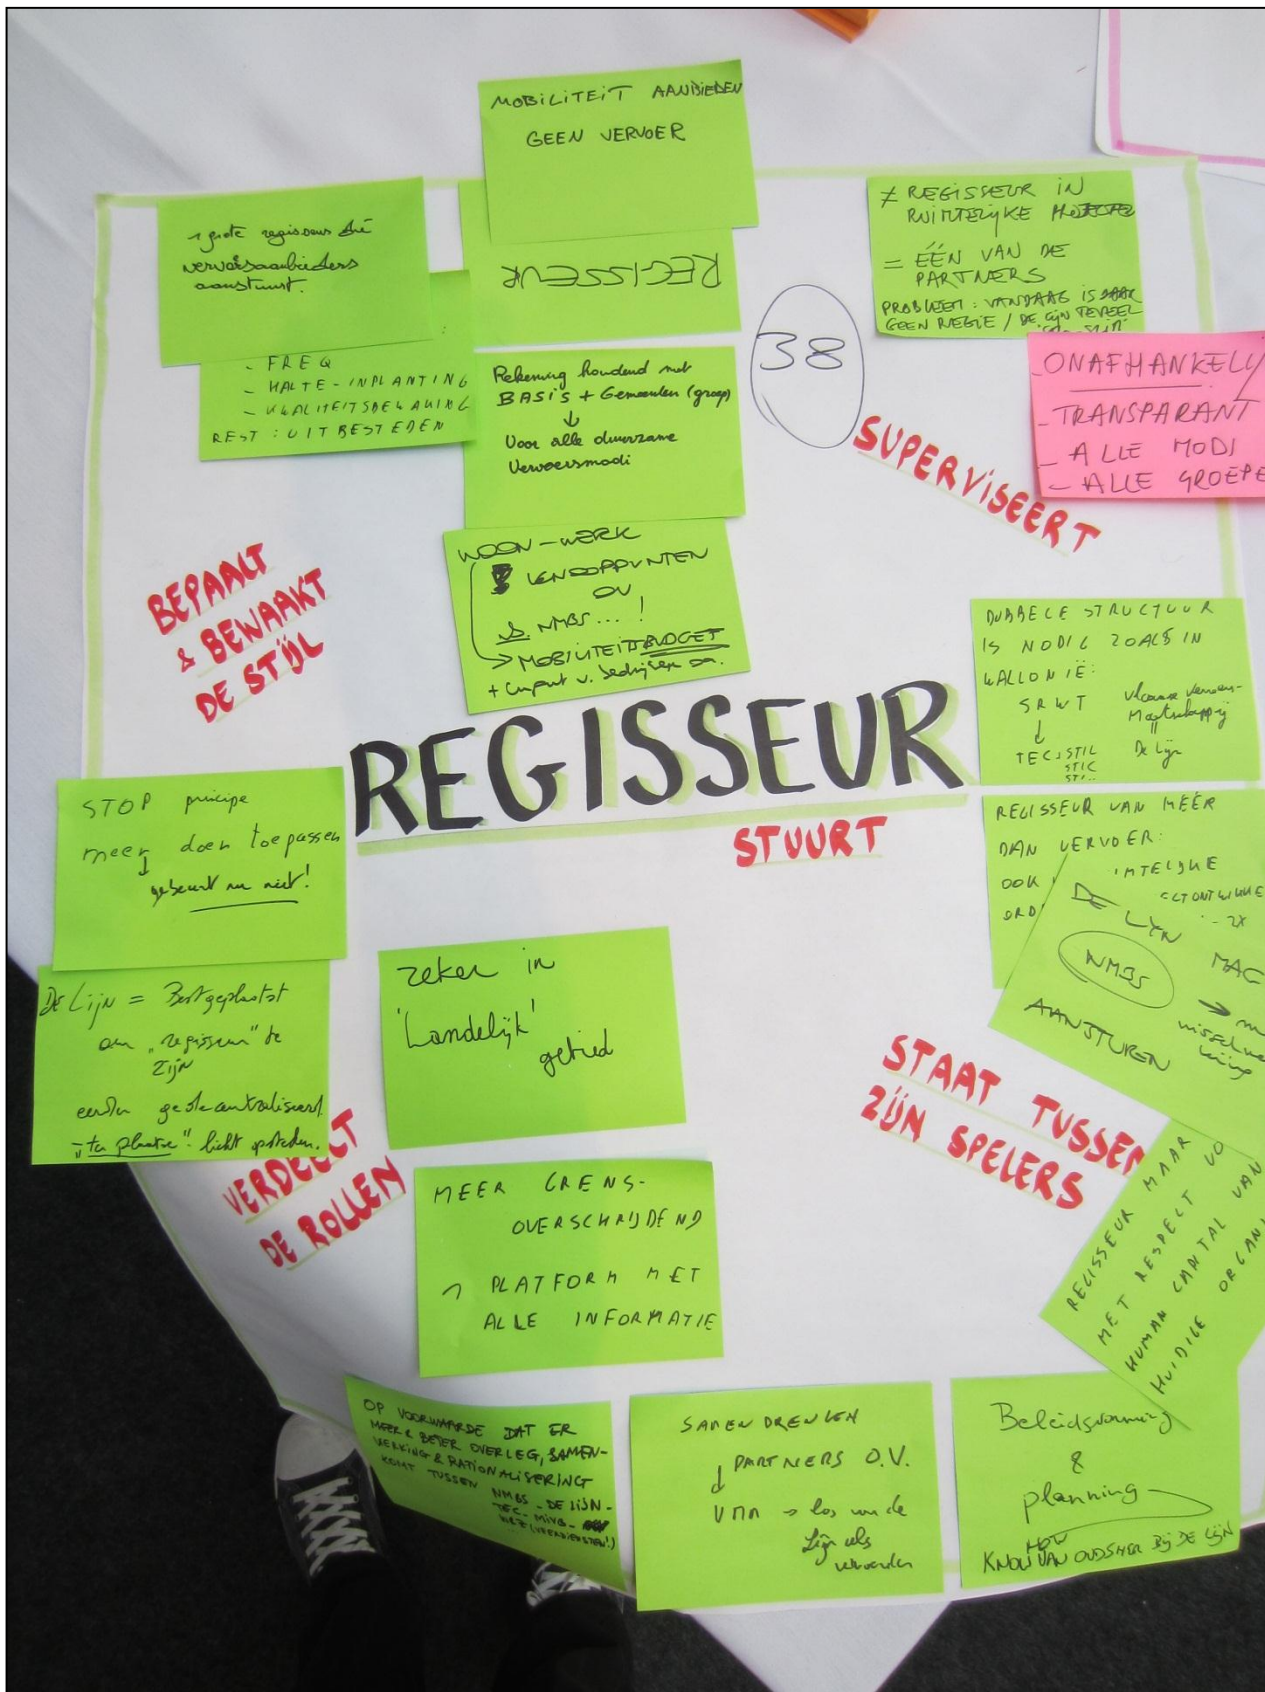 MOBILITEIT AANBIEDEN
GEEN VERVOER
1 grote regisseur die
vervoersaanbieders
aanstuurt.
REGISSEUR
≠ REGISSEUR IN
RUIMTELIJKE
= ÉÉN VAN DE
PARTNERS
PROBLEEM: VANDAAG IS DAAR
GEEN REGIE / DE LIJN TEVEEL
- FREQ
- HALTE-INPLANTING
- KWALITEITSBEWAKING
REST: UITBESTEDEN
Rekening houdend met
BASIS + Gemeenten (groep)
↓
Voor alle duurzame
Vervoersmodi
38
- ONAFHANKELIJ
- TRANSPARANT
- ALLE MODI
- ALLE GROEPE
SUPERVISEERT
WOON-WERK
KNOOPPUNTEN
OV
NMBS...!
→ MOBILITEITSBUDGET
+ input v. bedrijven
BEPAALT
& BEWAAKT
DE STIJL
DUBBELE STRUCTUUR
IS NODIG ZOALS IN
WALLONIË:
SRWT Vlaamse Vervoer-
↓ Maatschappij
TEC: STIL De Lijn
STIC
STI..
REGISSEUR
STUURT
STOP principe
meer doen toepassen
↓
gebeurt nu niet!
REGISSEUR VAN MEER
DAN VERVOER:
OOK
ORD
DE LIJN MAG
NMBS
AANSTUREN
De Lijn = Best geplaatst
om "regisseur" te
zijn
eerder gedecentraliseerd
"ter plaatse"
zeker in
'Landelijk'
gebied
STAAT TUSSEN
ZIJN SPELERS
VERDEELT
DE ROLLEN
MEER GRENS-
OVERSCHRIJDEND
1 PLATFORM MET
ALLE INFORMATIE
REGISSEUR MAAR
MET RESPECT VO
HUMAN CAPITAL VAN
HUIDIGE ORGANI
OP VOORWAARDE DAT ER
MEER & BETER OVERLEG, SAMEN-
WERKING & RATIONALISERING
KOMT TUSSEN
NMBS - DE LIJN -
TEC - MIVB -
SAMENBRENGEN
↓ PARTNERS O.V.
VMM → los van de
Lijn als
vervoerder
Beleidsvorming
&
planning
KNOW HOW VAN OUDSHER BIJ DE LIJN